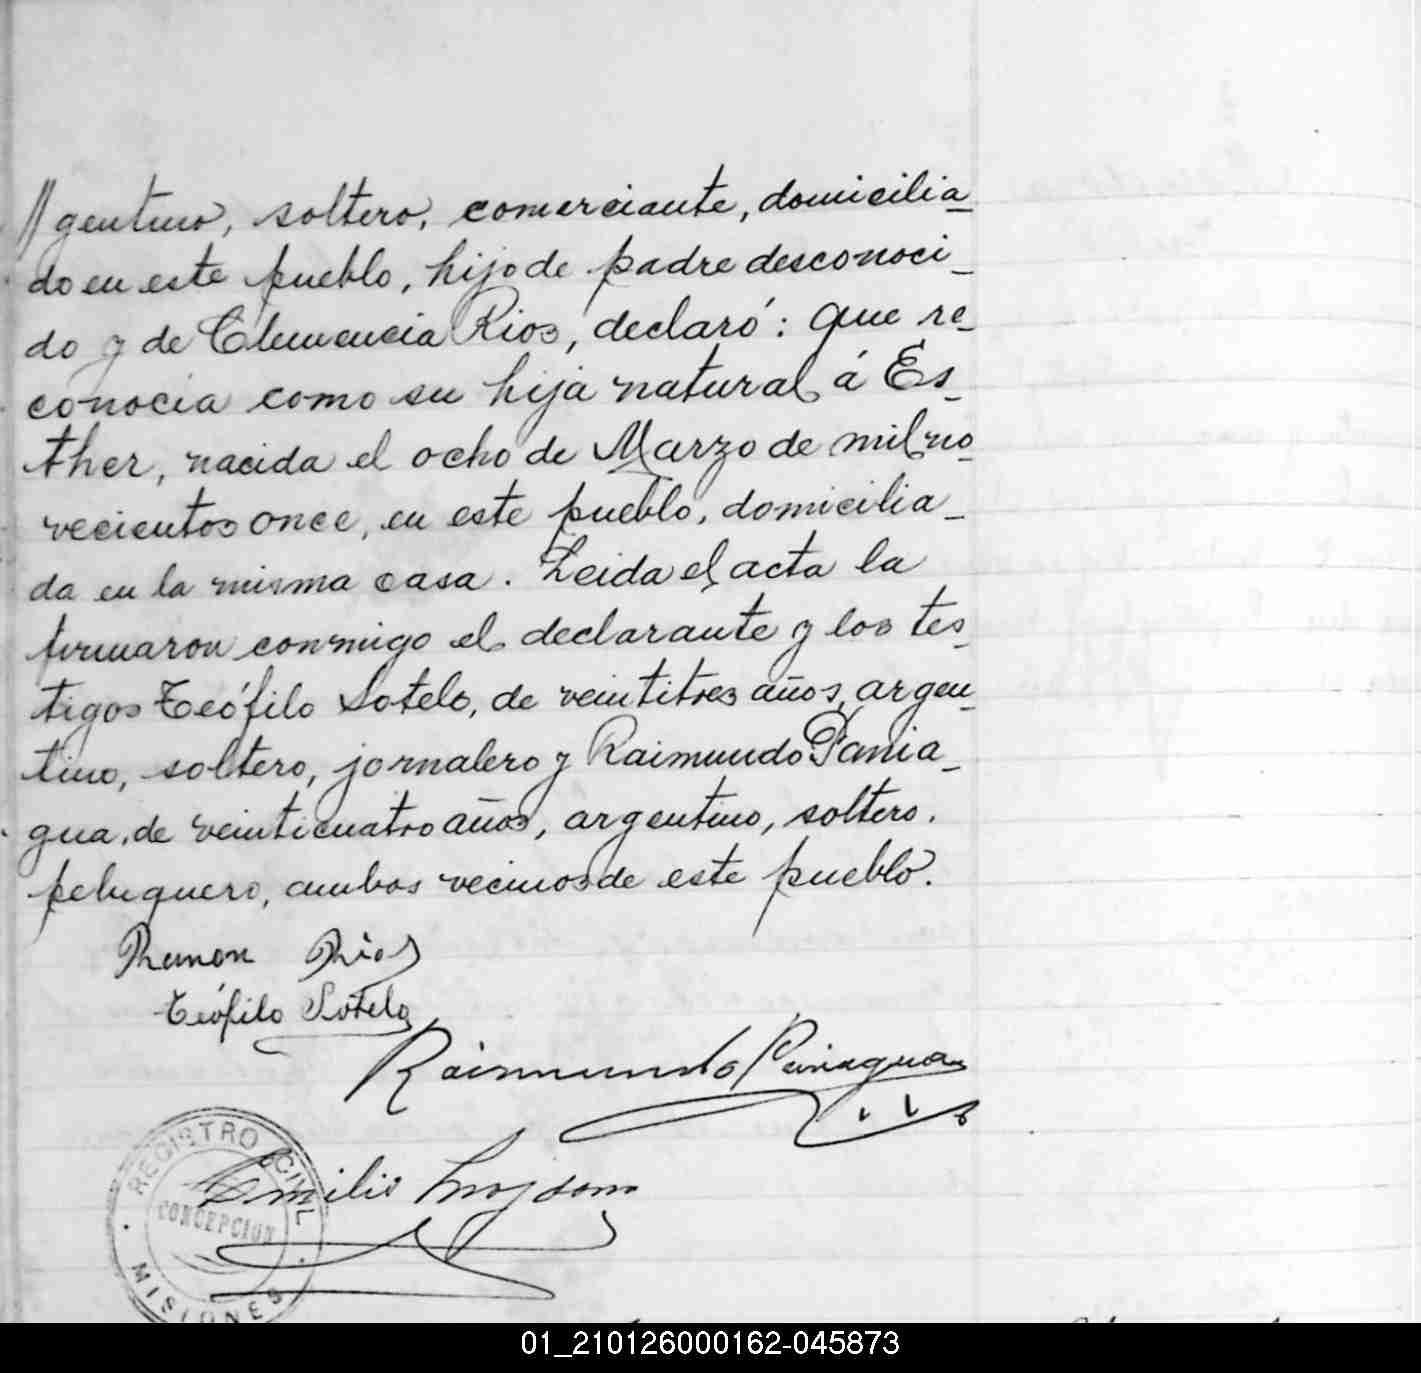 // gentino, soltero, comerciante, domicilia_
do en este pueblo, hijo de padre desconoci_
do y de Clemencia Rios, declaró: Que re_
conocia como su hija natural á Es_
ther, nacida el ocho de Marzo de mil no_
vecientos once, en este pueblo, domicilia_
da en la misma casa. Leida el acta la
firmaron conmigo el declarante y los tes_
tigos Teófilo Sotelo, de veintitres años, argen_
tino, soltero, jornalero y Raimundo Pania_
gua, de veinticuatro años, argentino, soltero,
peluquero, ambos vecinos de este pueblo.
Ramon Rios
Teófilo Sotelo
Raimundo Paniagua
Emilio
REGISTRO CIVIL
CONCEPCION
MISIONES
01_210126000162-045873